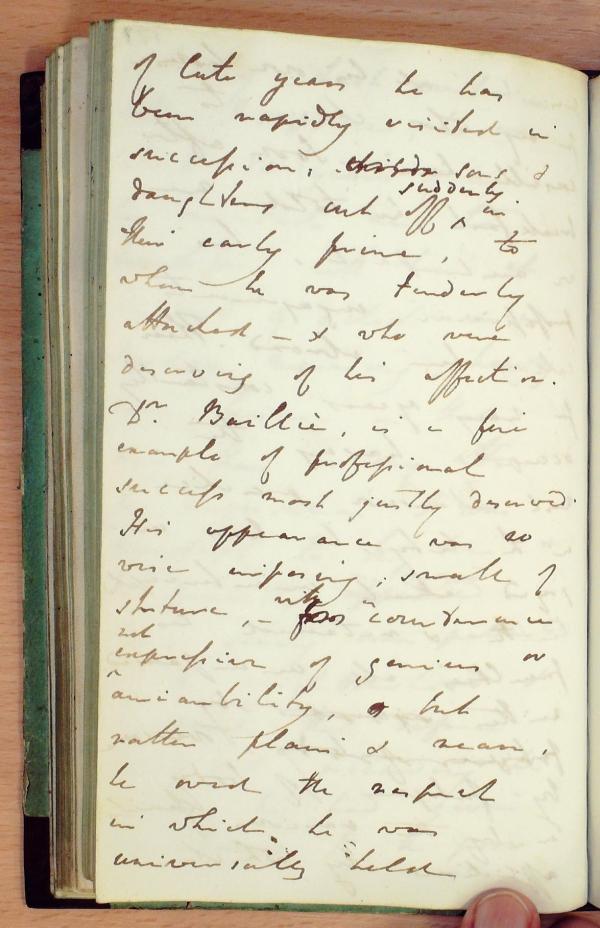 of late years he has
been rapidly visited in
succession, sons &
daughters cut off suddenly in
their early prime, to
whom he was tenderly
attached – & who were
deserving of his affection.
Dr. Baillie, is a fine
example of professional
success most justly deserved.
His appearance was no
wise imposing; small of
stature, – with a countenance
not
expressive of genius or
amiability, but
rather plain & mean,
he owed the respect
in which he was
universally held